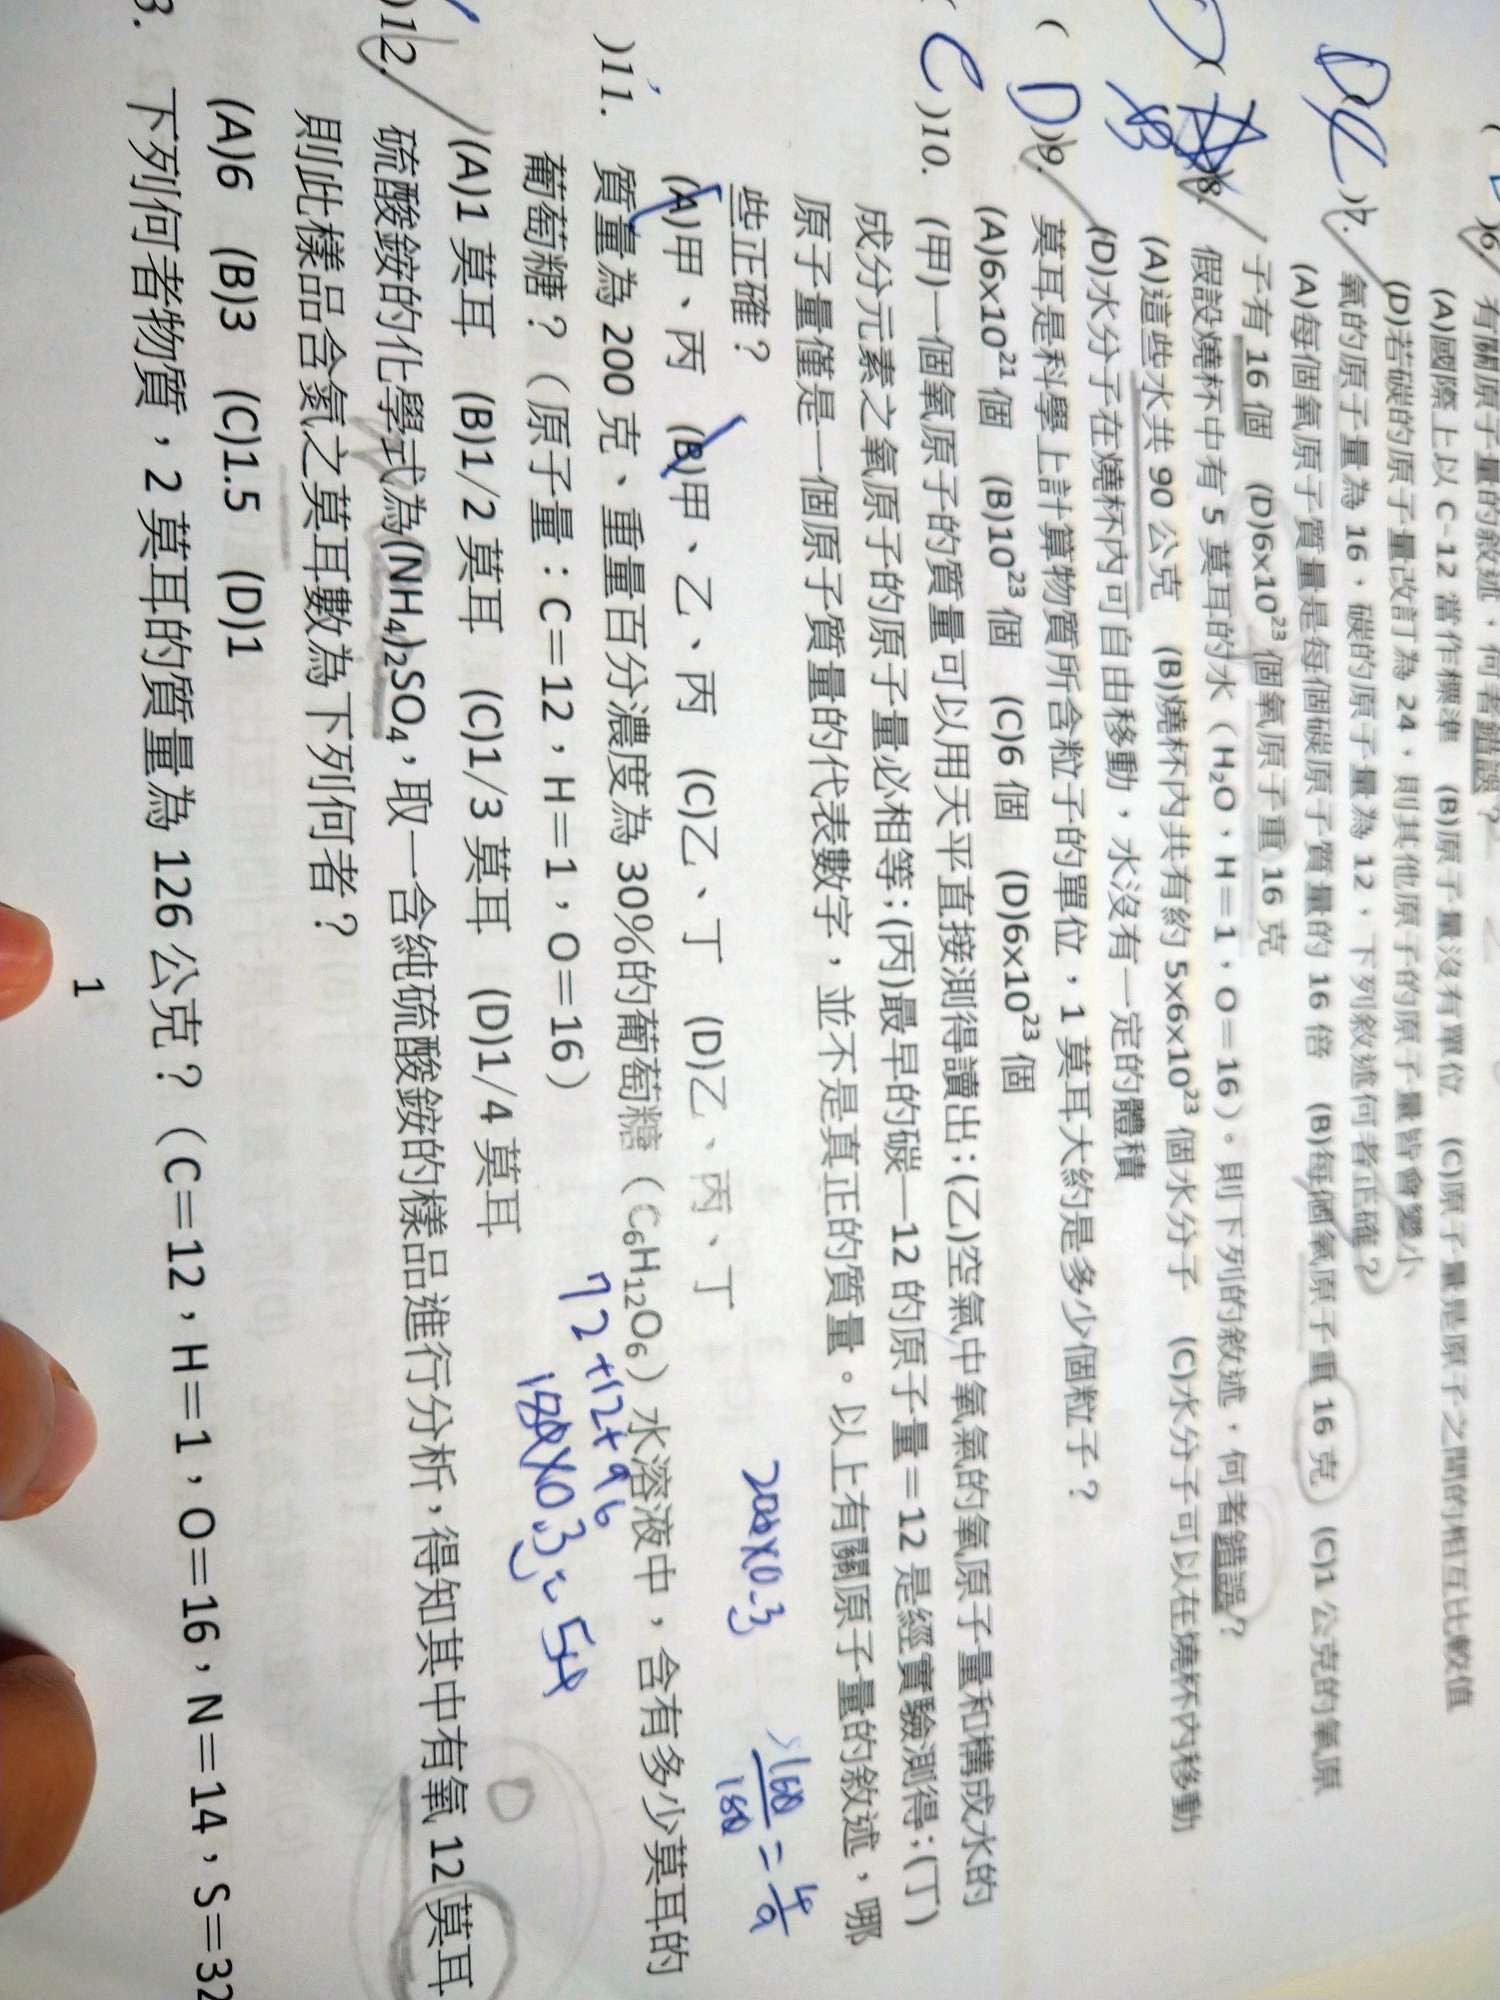 )6. 有關原子量的敘述，何者錯誤？
(A)國際上以 C-12 當作標準 (B)原子量沒有單位 (C)原子量是原子之間的相互比較值
(D)若碳的原子量改訂為 24，則其他原子的原子量皆會變小
)7. 氧的原子量為 16，碳的原子量為 12，下列敘述何者正確？
(A)每個氧原子質量是每個碳原子質量的 16 倍 (B)每個氧原子重 16 克 (C)1 公克的氧原
子有 16 個 (D)6x10²³ 個氧原子重 16 克
)8. 假設燒杯中有 5 莫耳的水（H₂O，H＝1，O＝16）。則下列的敘述，何者錯誤？
(A)這些水共 90 公克 (B)燒杯內共有約 5x6x10²³ 個水分子 (C)水分子可以在燒杯內移動
(D)水分子在燒杯內可自由移動，水沒有一定的體積
( D )9. 莫耳是科學上計算物質所含粒子的單位，1 莫耳大約是多少個粒子？
(A)6x10²¹ 個 (B)10²³ 個 (C)6 個 (D)6x10²³ 個
( C )10. (甲)一個氧原子的質量可以用天平直接測得讀出；(乙)空氣中氧氣的氧原子量和構成水的
成分元素之氧原子的原子量必相等；(丙)最早的碳—12 的原子量＝12 是經實驗測得；(丁)
原子量僅是一個原子質量的代表數字，並不是真正的質量。以上有關原子量的敘述，哪
些正確？
(A)甲、丙 (B)甲、乙、丙 (C)乙、丁 (D)乙、丙、丁
200×0.3
)11. 質量為 200 克、重量百分濃度為 30%的葡萄糖（C₆H₁₂O₆）水溶液中，含有多少莫耳的
葡萄糖？（原子量：C＝12，H＝1，O＝16）
72+12+96
180×0.3=54
(A)1 莫耳 (B)1/2 莫耳 (C)1/3 莫耳 (D)1/4 莫耳
)12. 硫酸銨的化學式為(NH₄)₂SO₄，取一含純硫酸銨的樣品進行分析，得知其中有氧 12 莫耳
則此樣品含氮之莫耳數為下列何者？
(A)6 (B)3 (C)1.5 (D)1
3. 下列何者物質，2 莫耳的質量為 126 公克？（C＝12，H＝1，O＝16，N＝14，S＝32
1